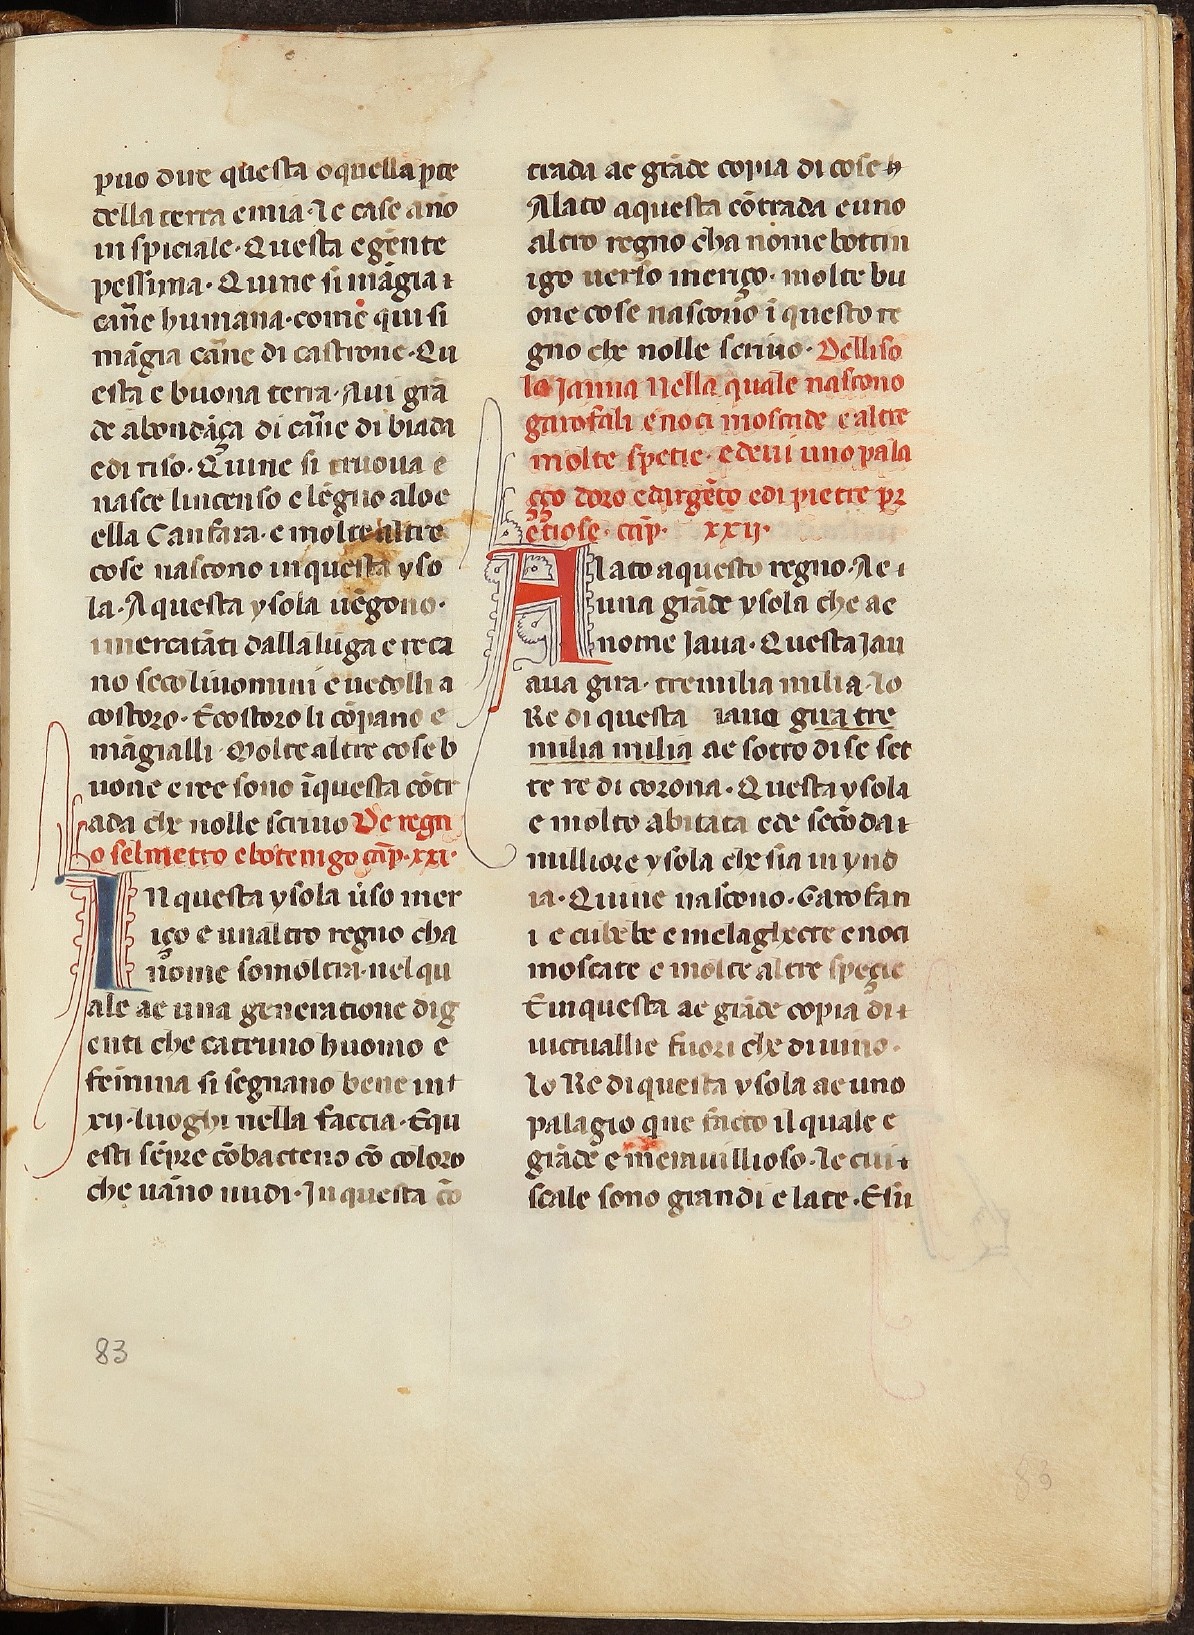 puo dire questa o quella pte
della terra e mia · le case āno
in spiciale · Questa e gente
pessima · Quine si māgia ⁊
carñe humana · come qui si
māgia carñe di castrone · Qu
esta e buona terra · Aui grā
de abondāça di carñe di biada
e di riso · Quine si truoua e
nasce lincenso e lēgno aloe
ella Canfara · e molte altre
cose nascono in questa yso
la · A questa ysola uēgono ·
i mercatāti dalla lūga e reca
no seco li uomini e uēdolli a
costoro · E costoro li cōpano e
māgialli · Molte altre cose b
uone e ree sono ī questa cōtr
ada che nolle scriuo De regn
o selmetro e botenigo cap̄ · xxi ·
IN questa ysola ūso mer
iço e unaltro regno cha
nome somoltra · nel qu
ale ae una generatione dig
enti che catruno huomo e
femina si segnano bene in ⁊
xij · luoghi nella faccia · E qu
esti sēpre cōbacteno cō coloro
che uāno nudi · In questa cō
trada ae grāde copia di cose h
Alato a questa cōtrada e uno
altro regno cha nome bottin
igo uerso meriço · molte bu
one cose nascono ī questo re
gno che nolle scriuo · Dell iso
la Janna Nella quale nascono
garofali e noci moscade e altre
molte spetie · ed eui uno pala
ço doro e dargēto e di pietre pr
etiose · cap̄ · xxij ·
Alato a questo regno · Ae ⁊
una grāde ysola che ae
nome Jaua · Questa Jau
aua gira · tremilia milia · lo
Re di questa Jaua gira tre
milia milia ae sotto di se set
te re di corona · Questa ysola
e molto abitata ed e secōda ⁊
milliore ysola che sia in ynd
ia · Quine nascono · Garofan
i e cubebe e melaghecte e noci
moscate e molte altre speçie
E in questa ae grāde copia di ⁊
uictuallie fuori che di uino ·
lo Re di questa ysola ae uno
palagio que facto il quale e
grāde e merauillioso · le cui ⁊
scale sono grandi e late · E sū
83
83